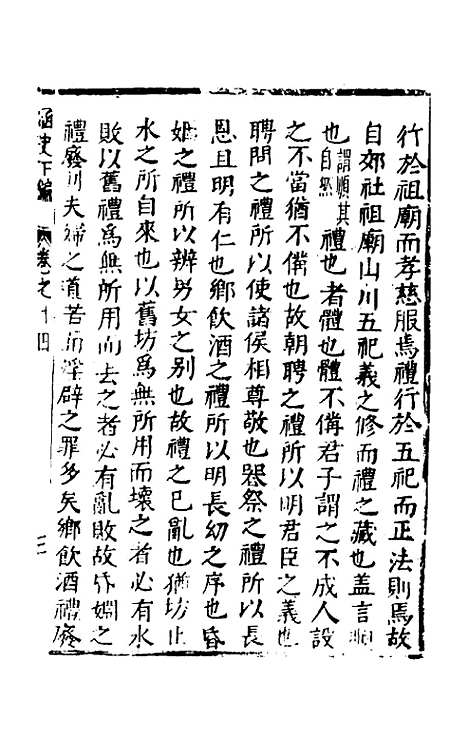 行於祖廟而孝慈服焉禮行於五祀而正法則焉故
自郊社祖廟山川五祀義之修而禮之藏也蓋言順
也謂順其自然禮也者體也體不備君子謂之不成人設
之不當猶不備也故朝聘之禮所以明君臣之義也
聘問之禮所以使諸侯相尊敬也器祭之禮所以長
恩且明有仁也鄉飲酒之禮所以明長幼之序也昏
姻之禮所以辨男女之別也故禮之已亂也猶坊止
水之所自來也以舊坊為無所用而壞之者必有水
敗以舊禮爲無所用而去之者必有亂敗故昏姻之
禮廢則夫婦之道苦而淫辟之罪多矣鄉飲酒禮廢
函史下編 卷之十四 三